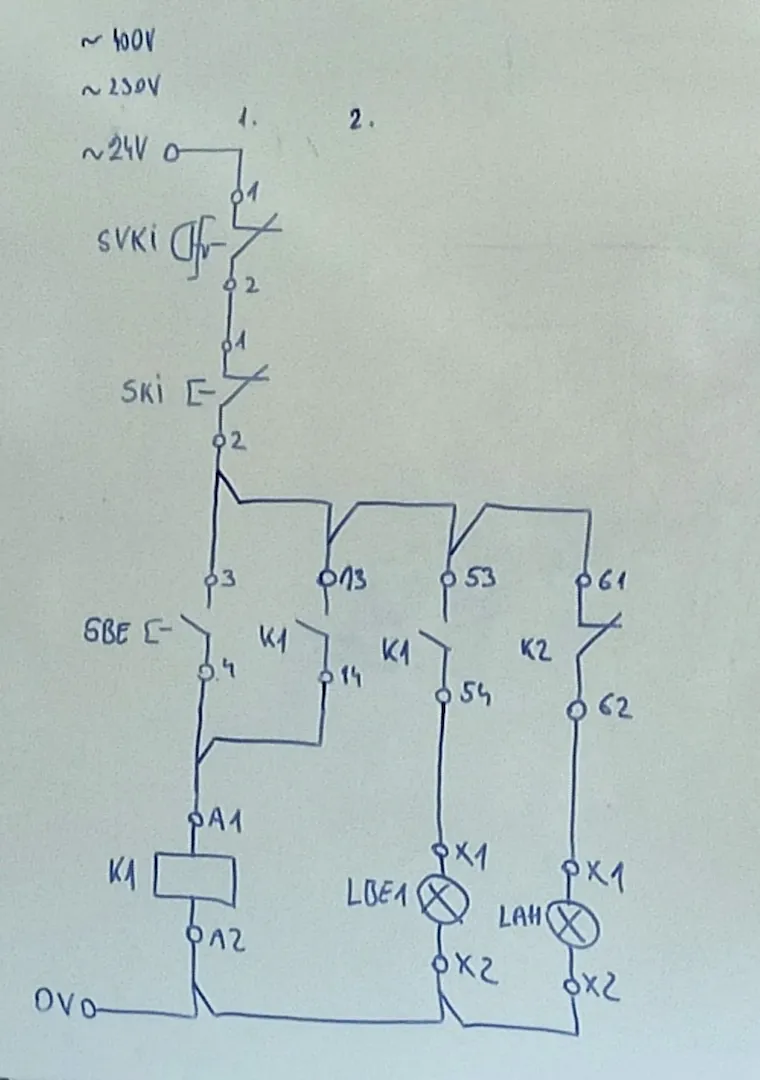 ~ 400V
~ 230V
1. 2.
~24V
1
SVKi
2
1
SKi
2
3 13 53 61
SBE K1 K1 K2
4 14 54 62
A1 X1 X1
K1 LBE1 LAH
A2 X2 X2
0V